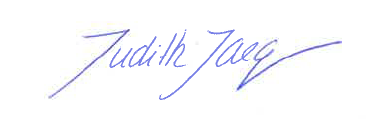 Judith Jaeg